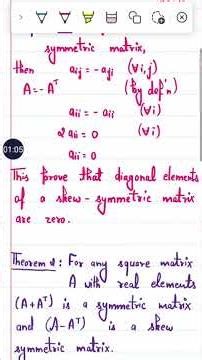 symmetric matrix,
then aij = -aji (∀i,j)
A = -Aᵀ (by def'n)
aii = -aii (∀i)
2aii = 0 (∀i)
aii = 0
01:05
This prove that diagonal elements
of a skew-symmetric matrix
are zero.
Theorem 2: For any square matrix
A with real elements
(A+Aᵀ) is a symmetric matrix
and (A-Aᵀ) is a skew
symmetric matrix.